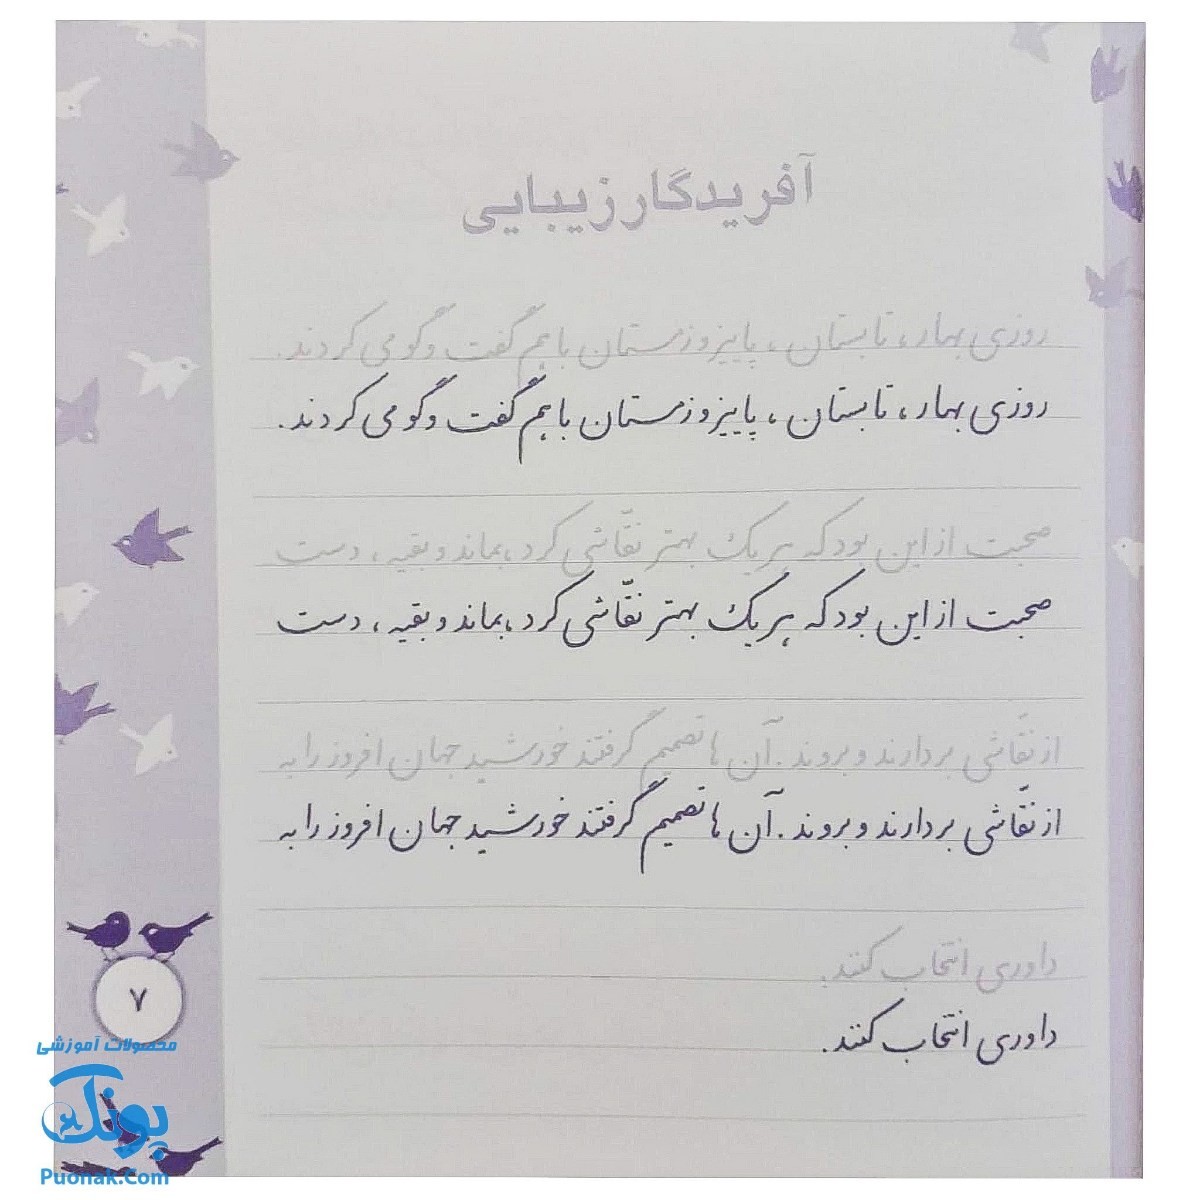 آفریدگار زیبایی
روزی بهار، تابستان، پاییز و زمستان با هم گفت و گو می کردند.
روزی بهار، تابستان، پاییز و زمستان با هم گفت و گو می کردند.
صحبت از این بود که هر یک بهتر نقّاشی کرد، بماند و بقیه، دست
صحبت از این بود که هر یک بهتر نقّاشی کرد، بماند و بقیه، دست
از نقّاشی بردارند و بروند. آن ها تصمیم گرفتند خورشید جهان افروز را به
از نقّاشی بردارند و بروند. آن ها تصمیم گرفتند خورشید جهان افروز را به
داوری انتخاب کنند.
داوری انتخاب کنند.
۷
محصولات آموزشی
پونک
Puonak.Com